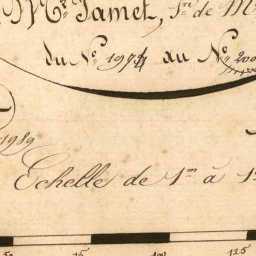 Mr Jamet, Sr de M
du No. 1974 au No. 200
1989
Echelle de 1m à 1
50 75 100 125